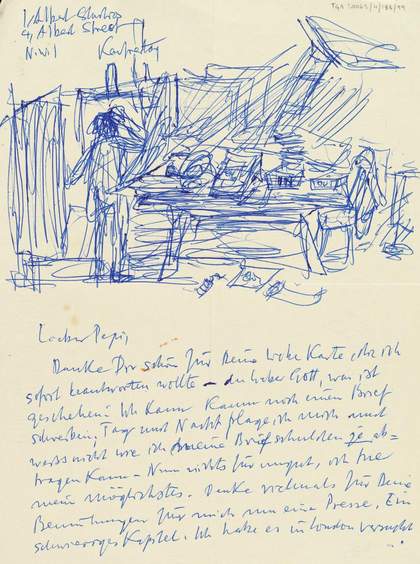 TGA 20065/4/186/99
1 Alfred Studios
Alfred Street
N.W.1
IN OUT
Lieber Pepi,
Danke Dir schön für Deine liebe Karte die ich
sofort beantworten wollte – du lieber Gott, was ist
geschehen? Ich kann kaum noch einen Brief
schreiben, Tag und Nacht plage ich mich und
weiss nicht wie ich meine Briefschulden je ab-
tragen kann – Nun nichts für ungut, ich tue
mein möglichstes. Danke vielmals für Deine
Bemühungen für mich um eine Presse. Ein
schwieriges Kapitel. Ich habe es in London versucht